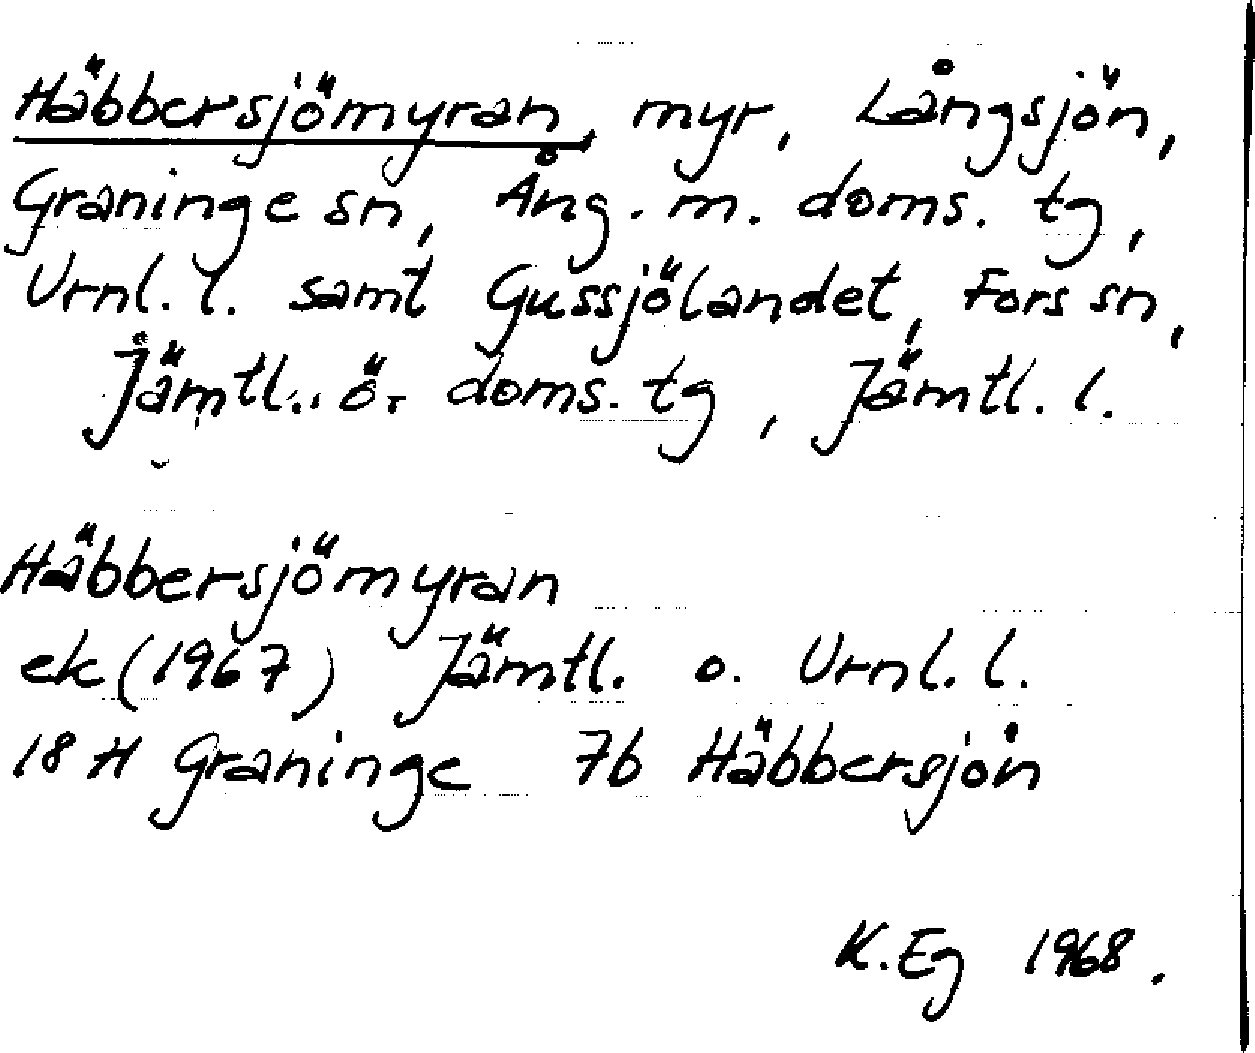 Häbbersjömyran, myr, Långsjön,
Graninge sn, Ång. m. doms. tg,
Vrnl. l. samt Gussjölandet, Fors sn,
Jämtl. ö. doms. tg, Jämtl. l.
Häbbersjömyran
ek (1967) Jämtl. o. Vrnl. l.
18 H Graninge 7b Häbbersjön
K. Eg 1968.